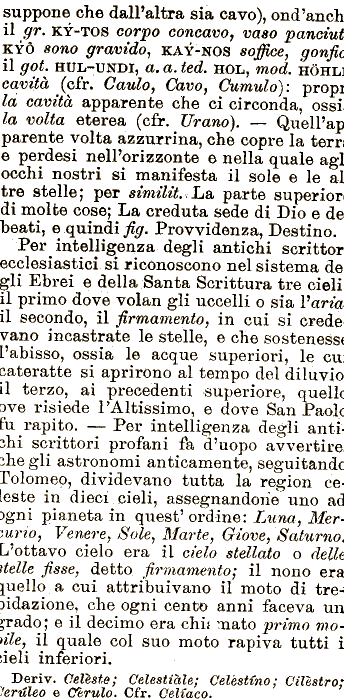 suppone che dall'altra sia cavo), ond'anch
il gr. KÝ-TOS corpo concavo, vaso panciut
KYÔ sono gravido, KAÝ-NOS soffice, gonfio
il got. HUL-UNDI, a.a.ted. HOL, mod. HÖHL
cavità (cfr. Caulo, Cavo, Cumulo): propr
la cavità apparente che ci circonda, ossi
la volta eterea (cfr. Urano). — Quell'ap
parente volta azzurrina, che copre la terr
e perdesi nell'orizzonte e nella quale agl
occhi nostri si manifesta il sole e le al
tre stelle; per similit. La parte superior
di molte cose; La creduta sede di Dio e de
beati, e quindi fig. Provvidenza, Destino.
Per intelligenza degli antichi scrittor
ecclesiastici si riconoscono nel sistema de
gli Ebrei e della Santa Scrittura tre cieli
il primo dove volan gli uccelli o sia l'aria
il secondo, il firmamento, in cui si crede-
vano incastrate le stelle, e che sostenesse
l'abisso, ossia le acque superiori, le cu
cateratte si aprirono al tempo del diluvio
il terzo, ai precedenti superiore, quello
ove risiede l'Altissimo, e dove San Paolo
fu rapito. — Per intelligenza degli anti-
chi scrittori profani fa d'uopo avvertire
che gli astronomi anticamente, seguitando
Tolomeo, dividevano tutta la region ce-
leste in dieci cieli, assegnandone uno ad
ogni pianeta in quest' ordine: Luna, Mer-
curio, Venere, Sole, Marte, Giove, Saturno.
L'ottavo cielo era il cielo stellato o delle
stelle fisse, detto firmamento; il nono era
quello a cui attribuivano il moto di tre-
pidazione, che ogni cento anni faceva un
grado; e il decimo era chiamato primo mo-
bile, il quale col suo moto rapiva tutti i
cieli inferiori.
Deriv. Celèste; Celestiàle; Celestíno; Cilèstro;
Cerúleo e Cèrulo. Cfr. Celíaco.